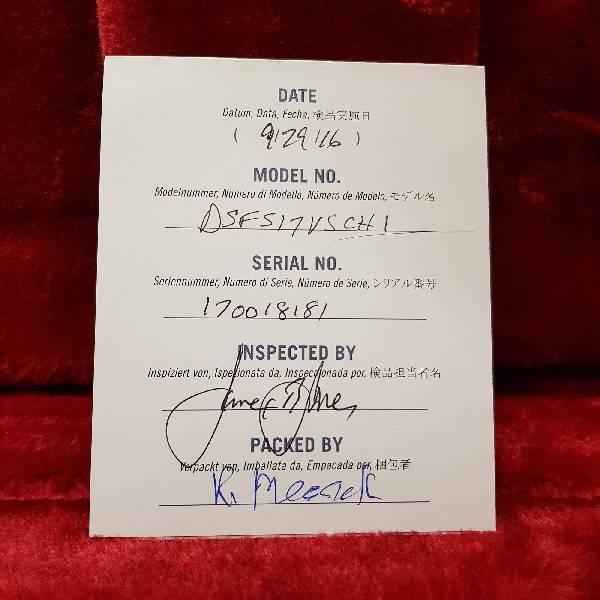 DATE
Datum, Data, Fecha, 検品実施日
( 9/29/16 )
MODEL NO.
Modelnummer, Numero di Modello, Número de Modelo, モデル名
DSFS17VSCH1
SERIAL NO.
Seriennummer, Numero di Serie, Número de Serie, シリアル番号
170018181
INSPECTED BY
Inspiziert von, Ispezionata da, Inspeccionada por, 検品担当者名
PACKED BY
Verpackt von, Imballata da, Empacada por, 梱包者
K.